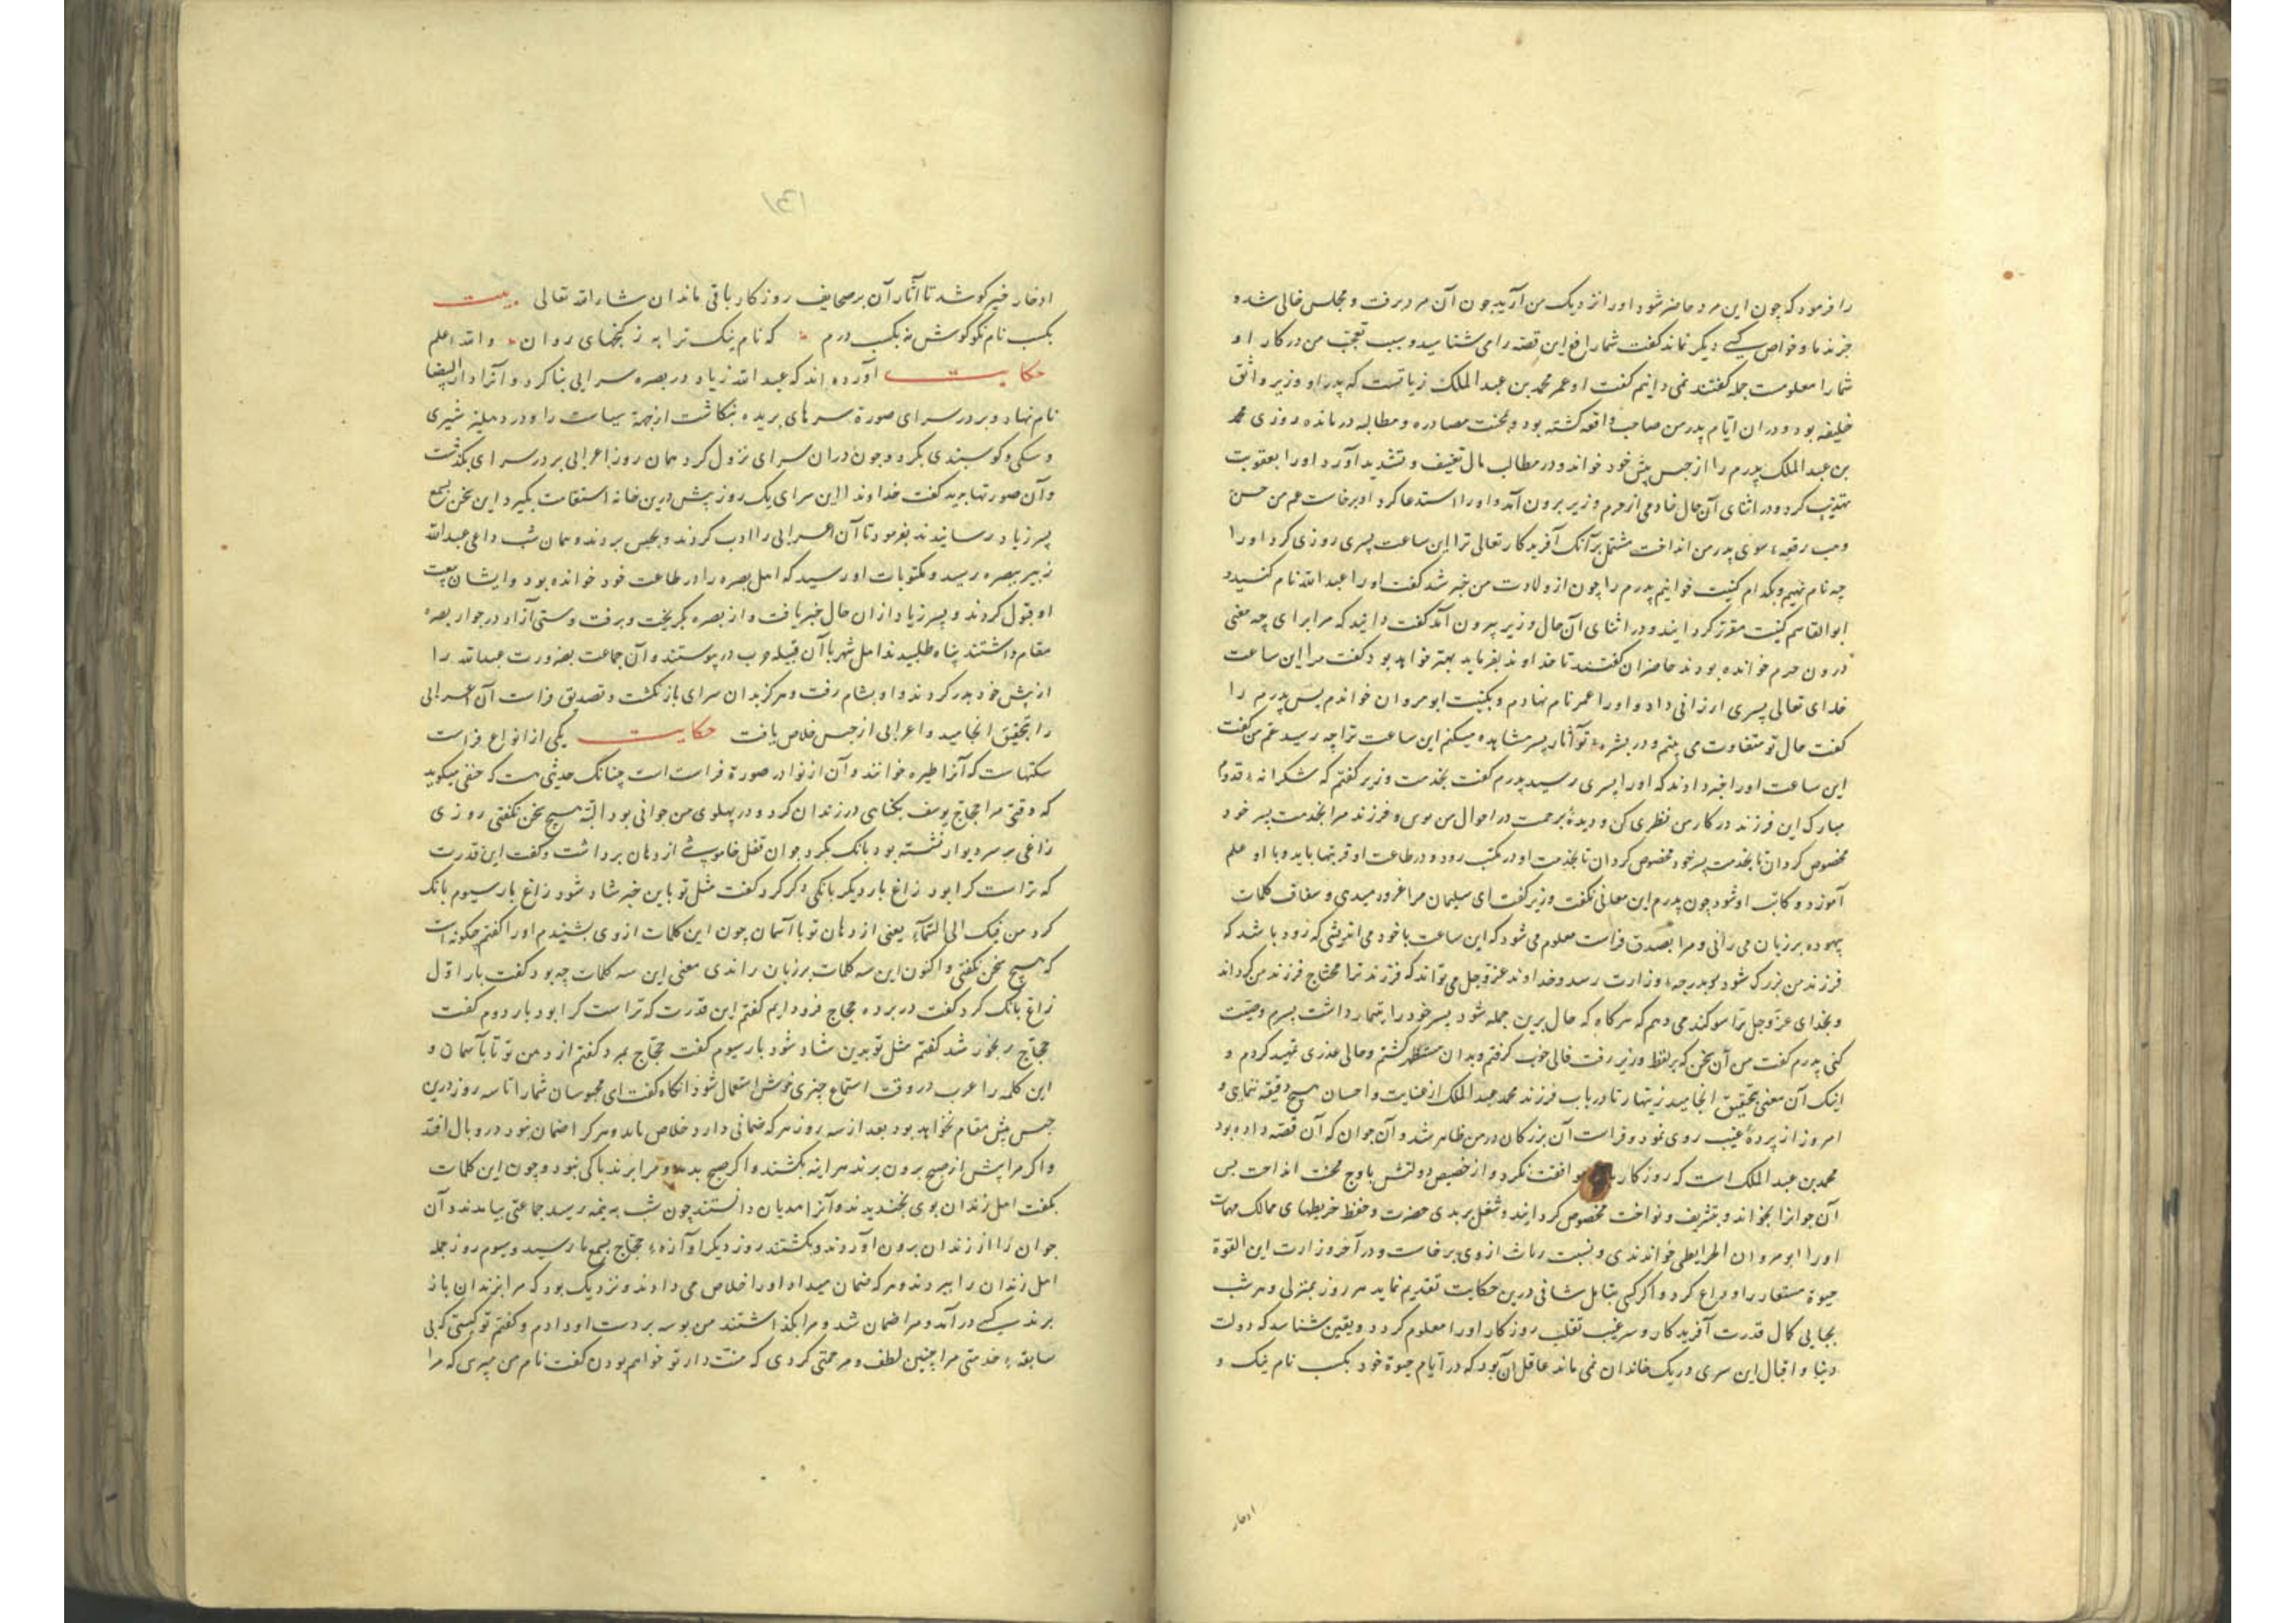 را فرمود که چون این مرد حاضر شود او را نزدیک من آرید چون آن مرد برفت و مجلس خالی شده
جز ندما و خواص کسی دیگر نماند گفت شما رافع این قصه را می شناسید و سبب تعجب من در کار او
شما را معلومست جمله گفتند نمی دانیم گفت او عمر محمد بن عبد الملک زیاتست که پدر او وزیر واثق
خلیفه بود و در ان ایام پدر من صاحب واقعه گشته بود و بمحنت مصادره و مطالبه درمانده روزی محمد
بن عبد الملک پدرم را از حبس پیش خود خواند و در مطالب مال تعنیف و تشدید آورد و او را بعقوبت
تهدید کرد و در اثنای آن حال خادمی از حرم وزیر برون آمد و او را استدعا کرد او برخاست عم من حسن
وهب رقعه سوی پدر من انداخت مشتمل بر آنک آفریدکار تعالی ترا این ساعت پسری روزی کرد او را
چه نام نهیم و بکدام کنیت خوانیم پدرم را چون از ولادت من خبر شد گفت او را عبد الله نام کنید و
ابو القاسم کنیت مقرر گردانید و در اثنای آن حال وزیر برون آمد گفت دانید که مرا برای چه معنی
درون حرم خوانده بودند حاضران گفتند تا خداوند بفرماید بهتر خواهد بود گفت مرا این ساعت
خدای تعالی پسری ارزانی داد و او را عمر نام نهادم و بکنیت ابو مروان خواندم پس پدرم را
گفت حال تو متفاوت می بینم و در بشره تو آثار پسر مشاهده میکنم این ساعت ترا چه رسید عم من گفت
این ساعت او را خبر دادند که او را پسری رسید پدرم گفت بخدمت وزیر گفتم که شکرانه قدوم
مبارک این فرزند در کار من نظری کن و دیده برحمت در احوال من و فرزند مرا بخدمت پسر خود
مخصوص گردان تا بخدمت پسر خود مخصوص گردان تا بخدمت او در مکتب رود و در طاعت او قربتها یابد و با او علم
آموزد و کاتب او شود چون پدرم این معانی بگفت وزیر گفت ای سلیمان مرا غرور میدی و کلمات
بیهوده بر زبان می رانی و مرا بصدق فراست معلوم می شود که این ساعت با خود می اندیشی که زود باشد که
فرزند من بزرک شود و بدرجه وزارت رسد و خداوند عز و جل می تواند که فرزند ترا محتاج فرزند من گرداند
و بخدای عز و جل ترا سوگند می دهم که هر گاه که حال برین جمله شود پسر خود را بتیمار داشت پسرم وصیت
کنی پدرم گفت من آن سخن که بر لفظ وزیر رفت فالی خوب گرفتم و بدان مستظهر گشتم و حالی عذری تمهید کردم و
اینک آن معنی بتحقیق انجامید زینهار تا در باب فرزند محمد عبد الملک از عنایت و احسان هیچ دقیقه ننمایی و
امروز از پرده غیب روی نمود و فراست آن بزرگان در من ظاهر شد و آن جوان که آن قصه داده بود
محمد بن عبد الملک است که روزگار موافقت نکرد و از حضیض دولتش باوج محنت انداخت پس
آن جوانرا بخواند و بتشریف و نواخت مخصوص گردانید و شغل بریدی حضرت و حفظ خریطهای ممالک مهمات
او را ابو مروان الخرایطی خواندندی و نسبت از وی برخاست و در آخر وزارت ابن القوة
حیوة مستعار را وداع کرد و اگر کسی بتامل شافی درین حکایت تقدیم نماید هر روز بمنزلی و هر شب
بجایی کمال قدرت آفریدکار و سر غیب تقلب روزگار او را معلوم گردد و بیقین شناسد که دولت
دنیا و اقبال این سری در یک خاندان نمی ماند عاقل آن بود که در ایام حیوة خود بکسب نام نیک و
ادخار
۱۳۱
ادخار خیر کوشد تا آثار آن بر صحایف روزگار باقی ماند ان شار الله تعالی بیت
بکسب نام نکو کوش نه بکسب درم که نام نیک ترا به ز گنجهای روان والله اعلم
حکایت آورده اند که عبد الله زیاد در بصره سرایی بنا کرد و آنرا دار البیضا
نام نهاد و بر در سرای صورة سرهای بریده بنگاشت از بهر سیاست را و در دهلیز شیری
و سگی و گوسپندی بکرد و چون در ان سرای نزول کرد همان روز اعرابی بر در سرای بگذشت
و آن صورتها بدید گفت خداوند این سرای یک روز بیش درین خانه استقامت نگیرد این سخن بسمع
پسر زیاد رسانیدند بفرمود تا آن اعرابی را ادب کردند و بحبس بردند و همان شب داعی عبد الله
زبیر ببصره رسید و مکتوبات او رسید که اهل بصره را در طاعت خود خوانده بود و ایشان بیعت
او قبول کردند و پسر زیاد از ان حال خبر یافت و از بصره بگریخت و برفت و آزاد در جوار بصره
مقام داشتند پناه طلبید ند اهل شهر با آن قبیله حرب در پیوستند و آن جماعت بضرورت عبد الله را
از پیش خود بدر کردند و او بشام رفت و هرگز بدان سرای باز نگشت و تصدیق فراست آن اعرابی
را بتحقیق انجامید و اعرابی از حبس خلاص یافت حکایت یکی از انواع فراست
سکنهاست که آنرا طیره خوانند و آن از نوادر صورة فراست است چنانک حدیثی هست که حنفی میگوید
که وقتی مرا حجاج یوسف بگناهی در زندان کرد و در پهلوی من جوانی بود البته هیچ سخن نگفتی روزی
زاغی بر سر دیوار نشسته بود بانک بکرد جوان قفل خاموشی از دهان برداشت و گفت این قدرت
که تراست کرا بود زاغ بار دیگر بانکی دگر کرد گفت مثل تو باین خبر شاد شود زاغ بار سیوم بانک
کرد من فیک الی السماء یعنی از دهان تو با آسمان چون این کلمات از وی بشنیدم او را گفتم چگونه است
که هیچ سخن نگفتی و اکنون این سه کلمات بر زبان راندی معنی این سه کلمات چه بود گفت بار اول
زاغ بانک کرد گفت در برده حجاج فرود ایم گفتم این قدرت که تراست کرا بود بار دوم گفت
حجاج رنجور شد گفتم مثل تو بدین شاد شود بار سیوم گفت حجاج بمرد گفتم از دهن تو تا بآسمان و
این کلمه را عرب در وقت استماع چیزی خوش استعمال شود آنگاه گفت ای محبوسان شما را تا سه روز درین
حبس بیش مقام نخواهد بود بعد از سه روز هر که ضمانی دارد خلاص یابد و هر کرا ضمان نبود در وبال افتد
و اگر مرا پیش از صبح برون برند هر اینه بکشند و اگر صبح بدمد و مرا برند باکی نبود و چون این کلمات
بگفت اهل زندان بوی بخندیدند و آنرا هذیان دانستند چون شب به نیمه رسید جماعتی بیامدند و آن
جوان را از زندان برون آوردند و بکشتند روز دیگر آوازه حجاج بسمع ما رسید و سیوم روز جمله
اهل زندان را ببردند و هر که ضمان میداد او را خلاص می دادند و نزدیک بود که مرا بزندان باز
برند کسی در آمد و مرا ضمان شد و مرا بگذاشتند من بوسه بر دست او دادم و گفتم تو کیستی که بی
سابقه خدمتی مرا چنین لطف و مرحمتی کردی که منت دار تو خواهم بودن گفت نام من مپرس که مرا